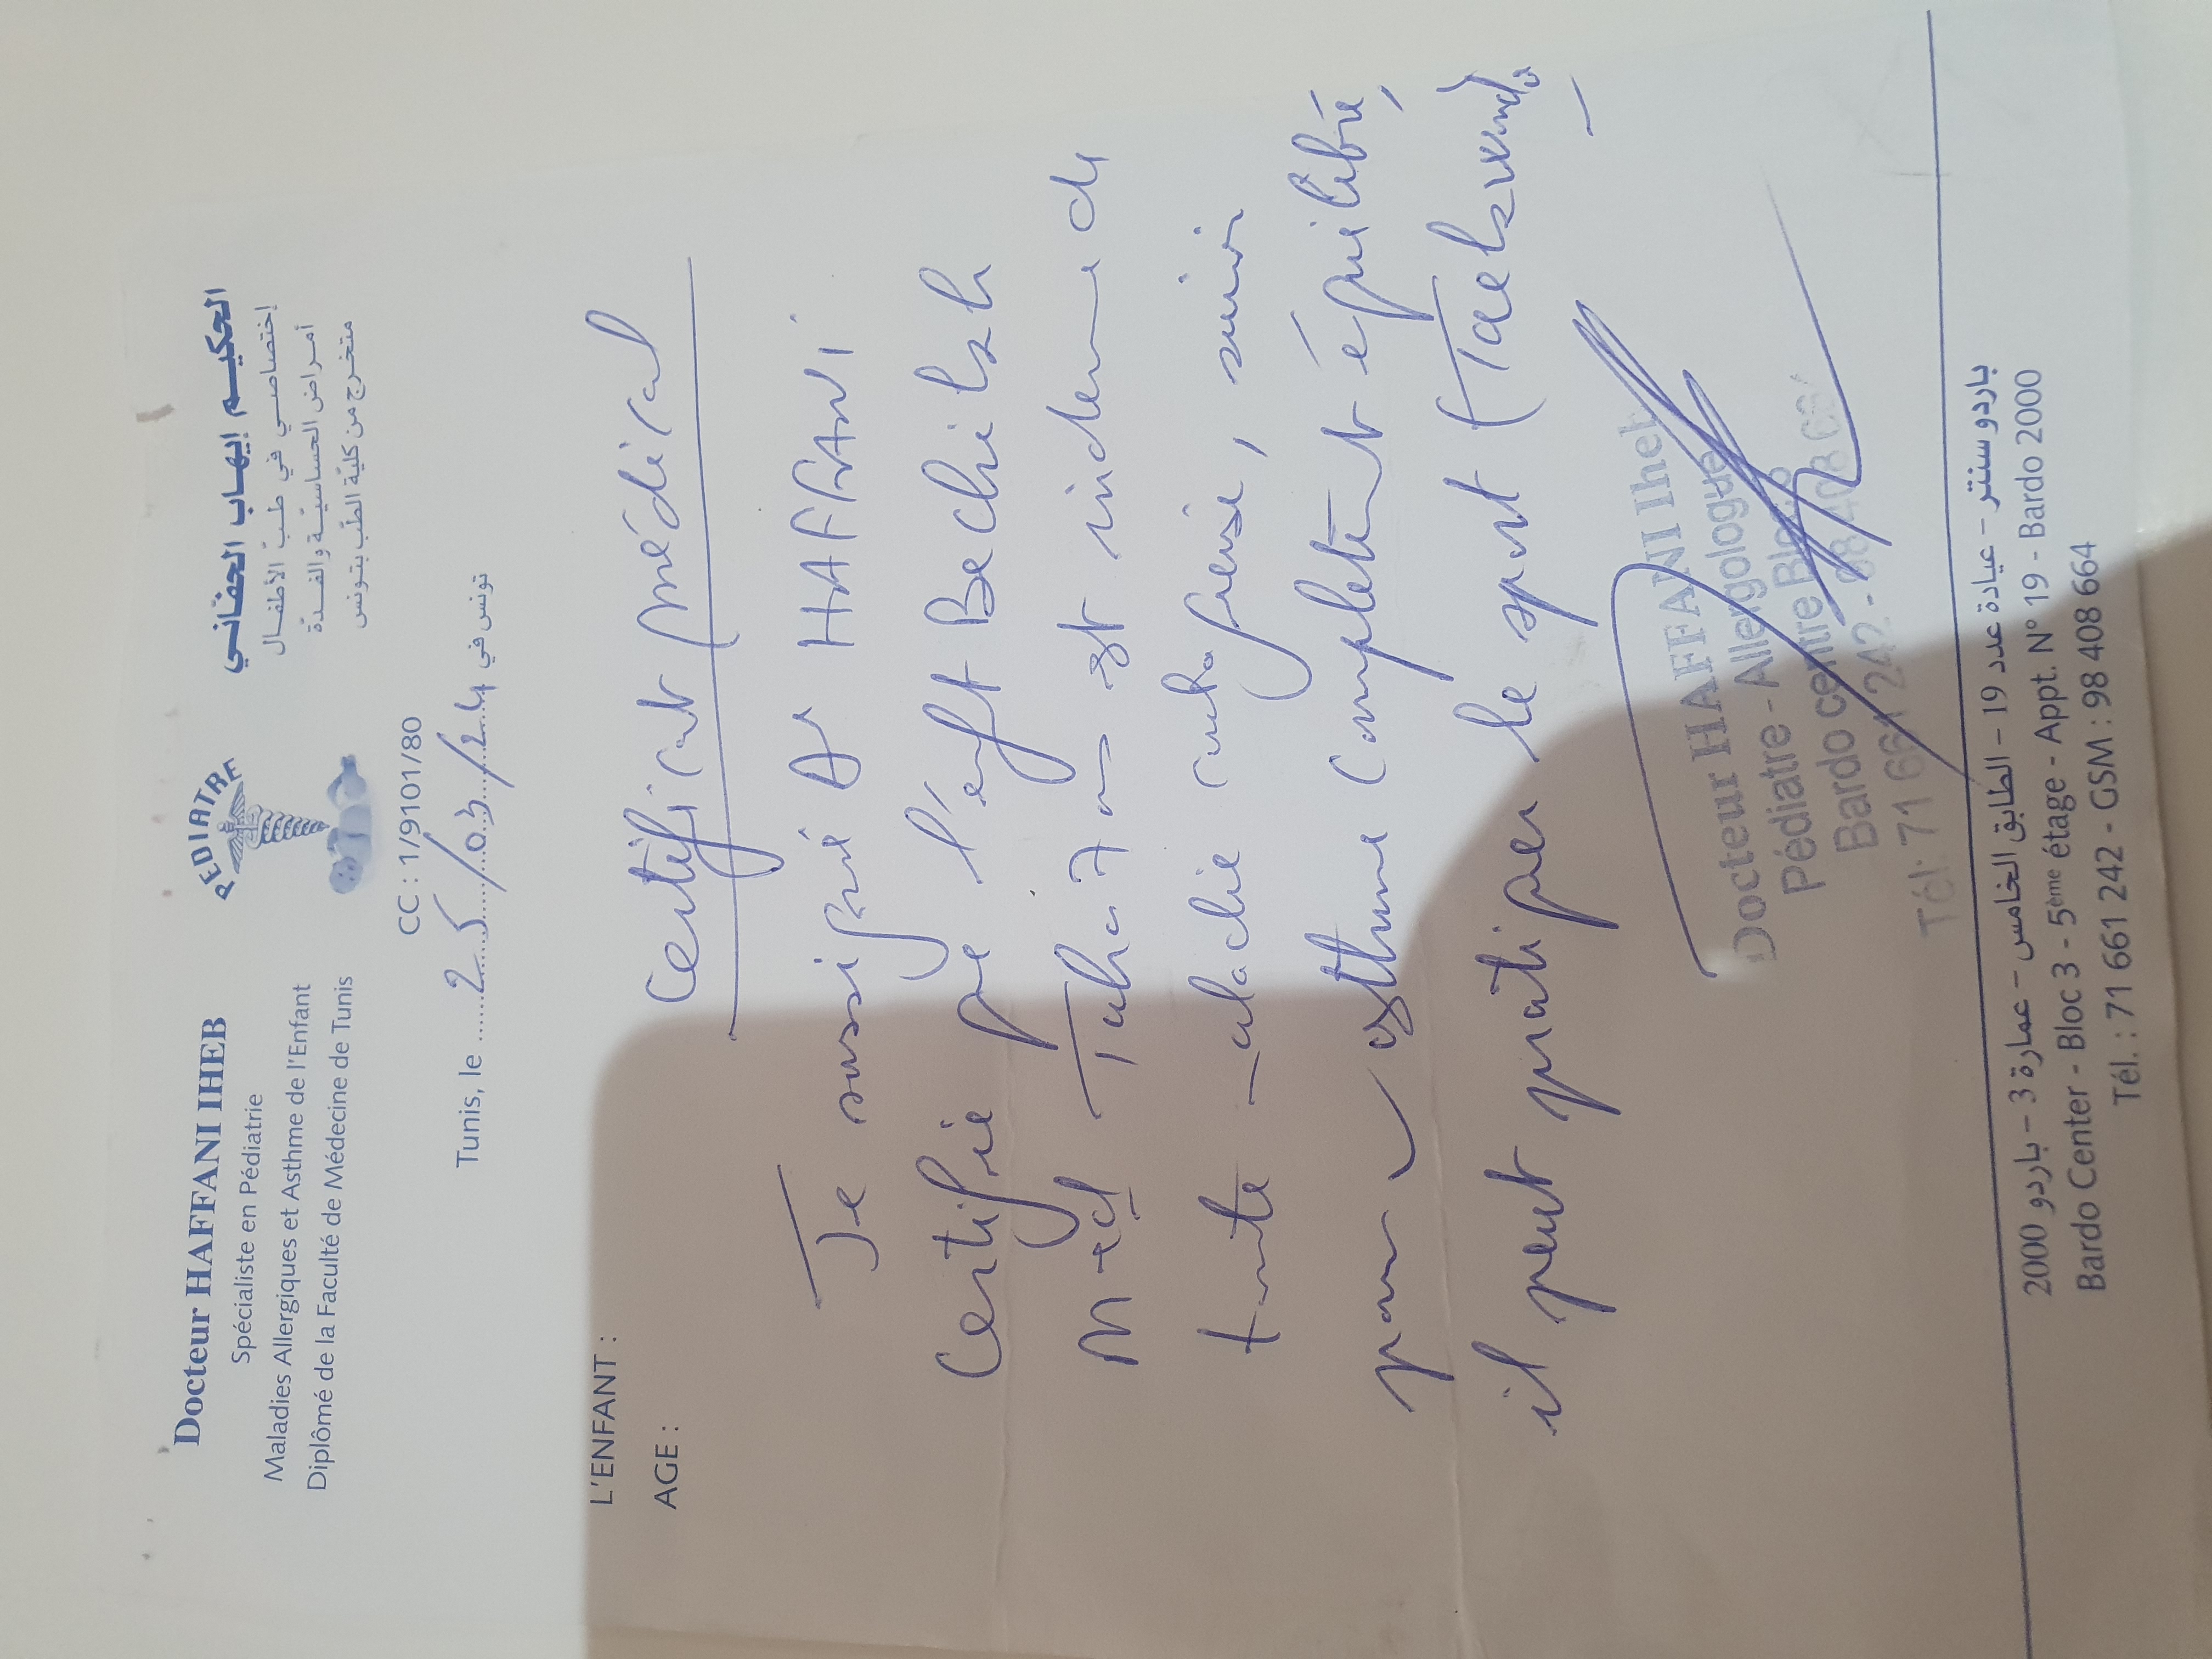 Docteur HAFFANI IHEB
Spécialiste en Pédiatrie
Maladies Allergiques et Asthme de l'Enfant
Diplômé de la Faculté de Médecine de Tunis
PEDIATRE
الحكيم إيهاب الحفّاني
إختصاصي في طبّ الأطفال
أمراض الحساسيّة والفدّة
متخرج من كليّة الطبّ بتونس
CC : 1/9101/80
Tunis, le 25/03/24 تونس في
L'ENFANT :
AGE :
Certificat médical
Je sussigné Dr HAFFANI
Certifie que l'enft Bechikh
Med Taha Am est indemne de
toute maladie contagieuse, suivi
pour asthme completent équilibré,
il peut pratiquer le sport (Taekwendo)
Docteur HAFFANI Iheb
Pédiatre - Allergologue
Bardo centre Bloc B
Tél: 71 661 242 - 98 408 664
باردو سنتر – عيادة عدد 19 – الطابق الخامس – عمارة 3 – باردو 2000
Bardo Center - Bloc 3 - 5ème étage - Appt. N° 19 - Bardo 2000
Tél. : 71 661 242 - GSM : 98 408 664